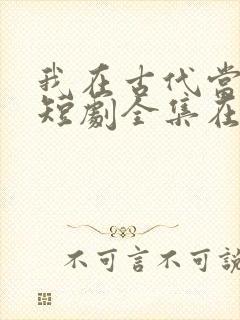 我在古代当
短劇全集在
不可言不可說